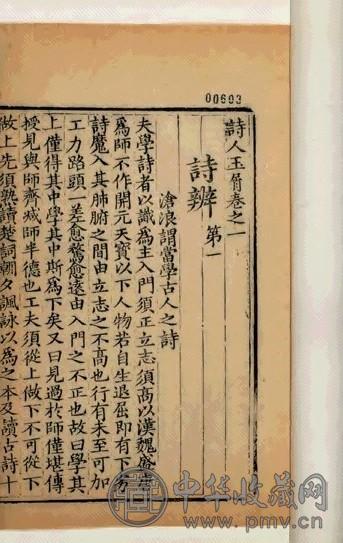 00603
詩人玉屑卷之一
詩辨 第一
滄浪謂當學古人之詩
夫學詩者以識爲主入門須正立志須高以漢魏盛唐
爲師不作開元天寶以下人物若自生退屈即有下劣
詩魔入其肺腑之間由立志之不高也行有未至可加
工力路頭一差愈騖愈遠由入門之不正也故曰學其
上僅得其中學其中斯爲下矣又曰見過於師僅堪傳
授見與師齊減師半德也工夫須從上做下不可從下
做上先須熟讀楚詞朝夕諷詠以爲之本及讀古詩十
中华收藏网
www.pmv.cn